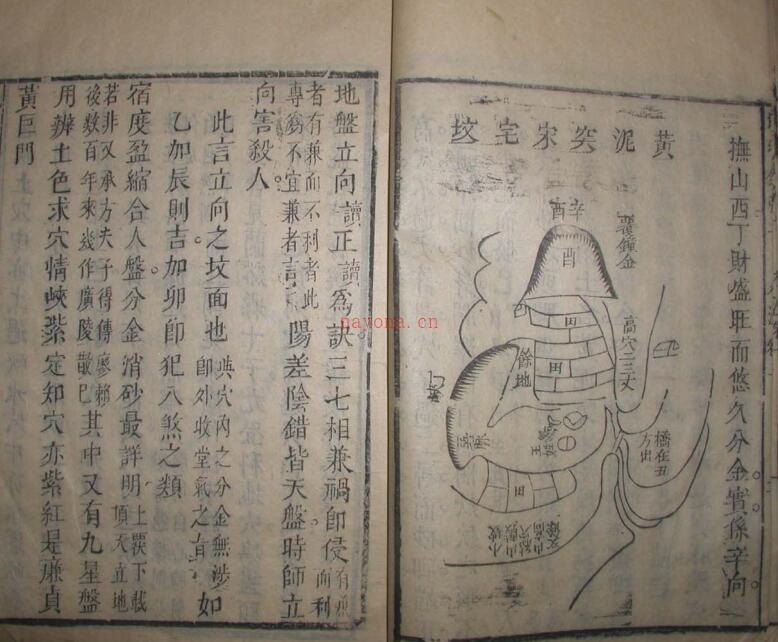 撫山西丁財盛旺而悠久分金實係辛向
黃泥突宋宅坟
辛酉
酉
覆鐘金
高穴二三丈
田
田
餘地
橋在丑
方出
田
小坡
地盤立向讀正讀為訣三七相兼禍即侵
者有兼而不利者此
專為不宜兼者言
陽差陰錯皆天盤時師立
向害殺人
此言立向之坟面也
與穴內之分金無涉
即外收堂氣之
如
乙加辰則吉加卯即犯八煞之類
宿度盈縮合人盤分金消砂最詳明
上頂天立地
若非又承方夫子得傳廖賴
後數百年來幾作廣陵散巴
其中又有九星盤
用辨土色求穴情峽紫定知穴亦紫紅是廉貞
黃巨門
nayona.cn